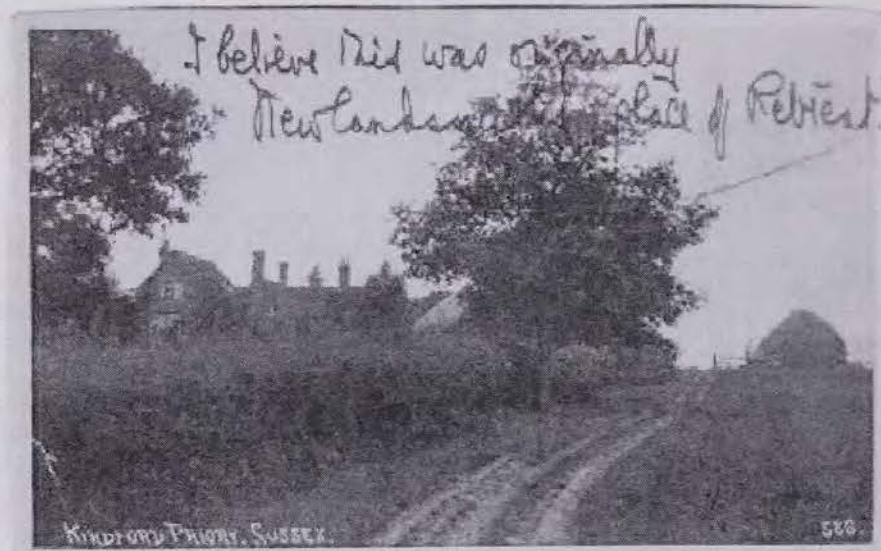 I believe this was originally
place of Retreat.
KIRDFORD PRIORY. SUSSEX.
586.